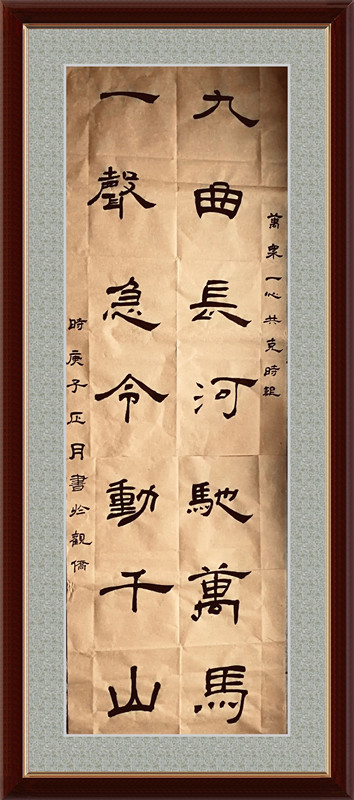 萬衆一心共克時艱
九曲長河馳萬馬
一聲急令動千山
時庚子正月書於觀儒